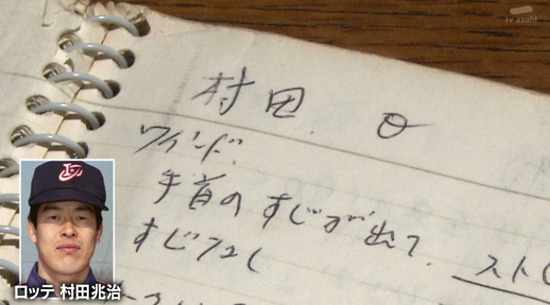 tv asahi
村田. θ
ワインド.
手首のすじが出て、スト
すじ
ロッテ 村田兆治